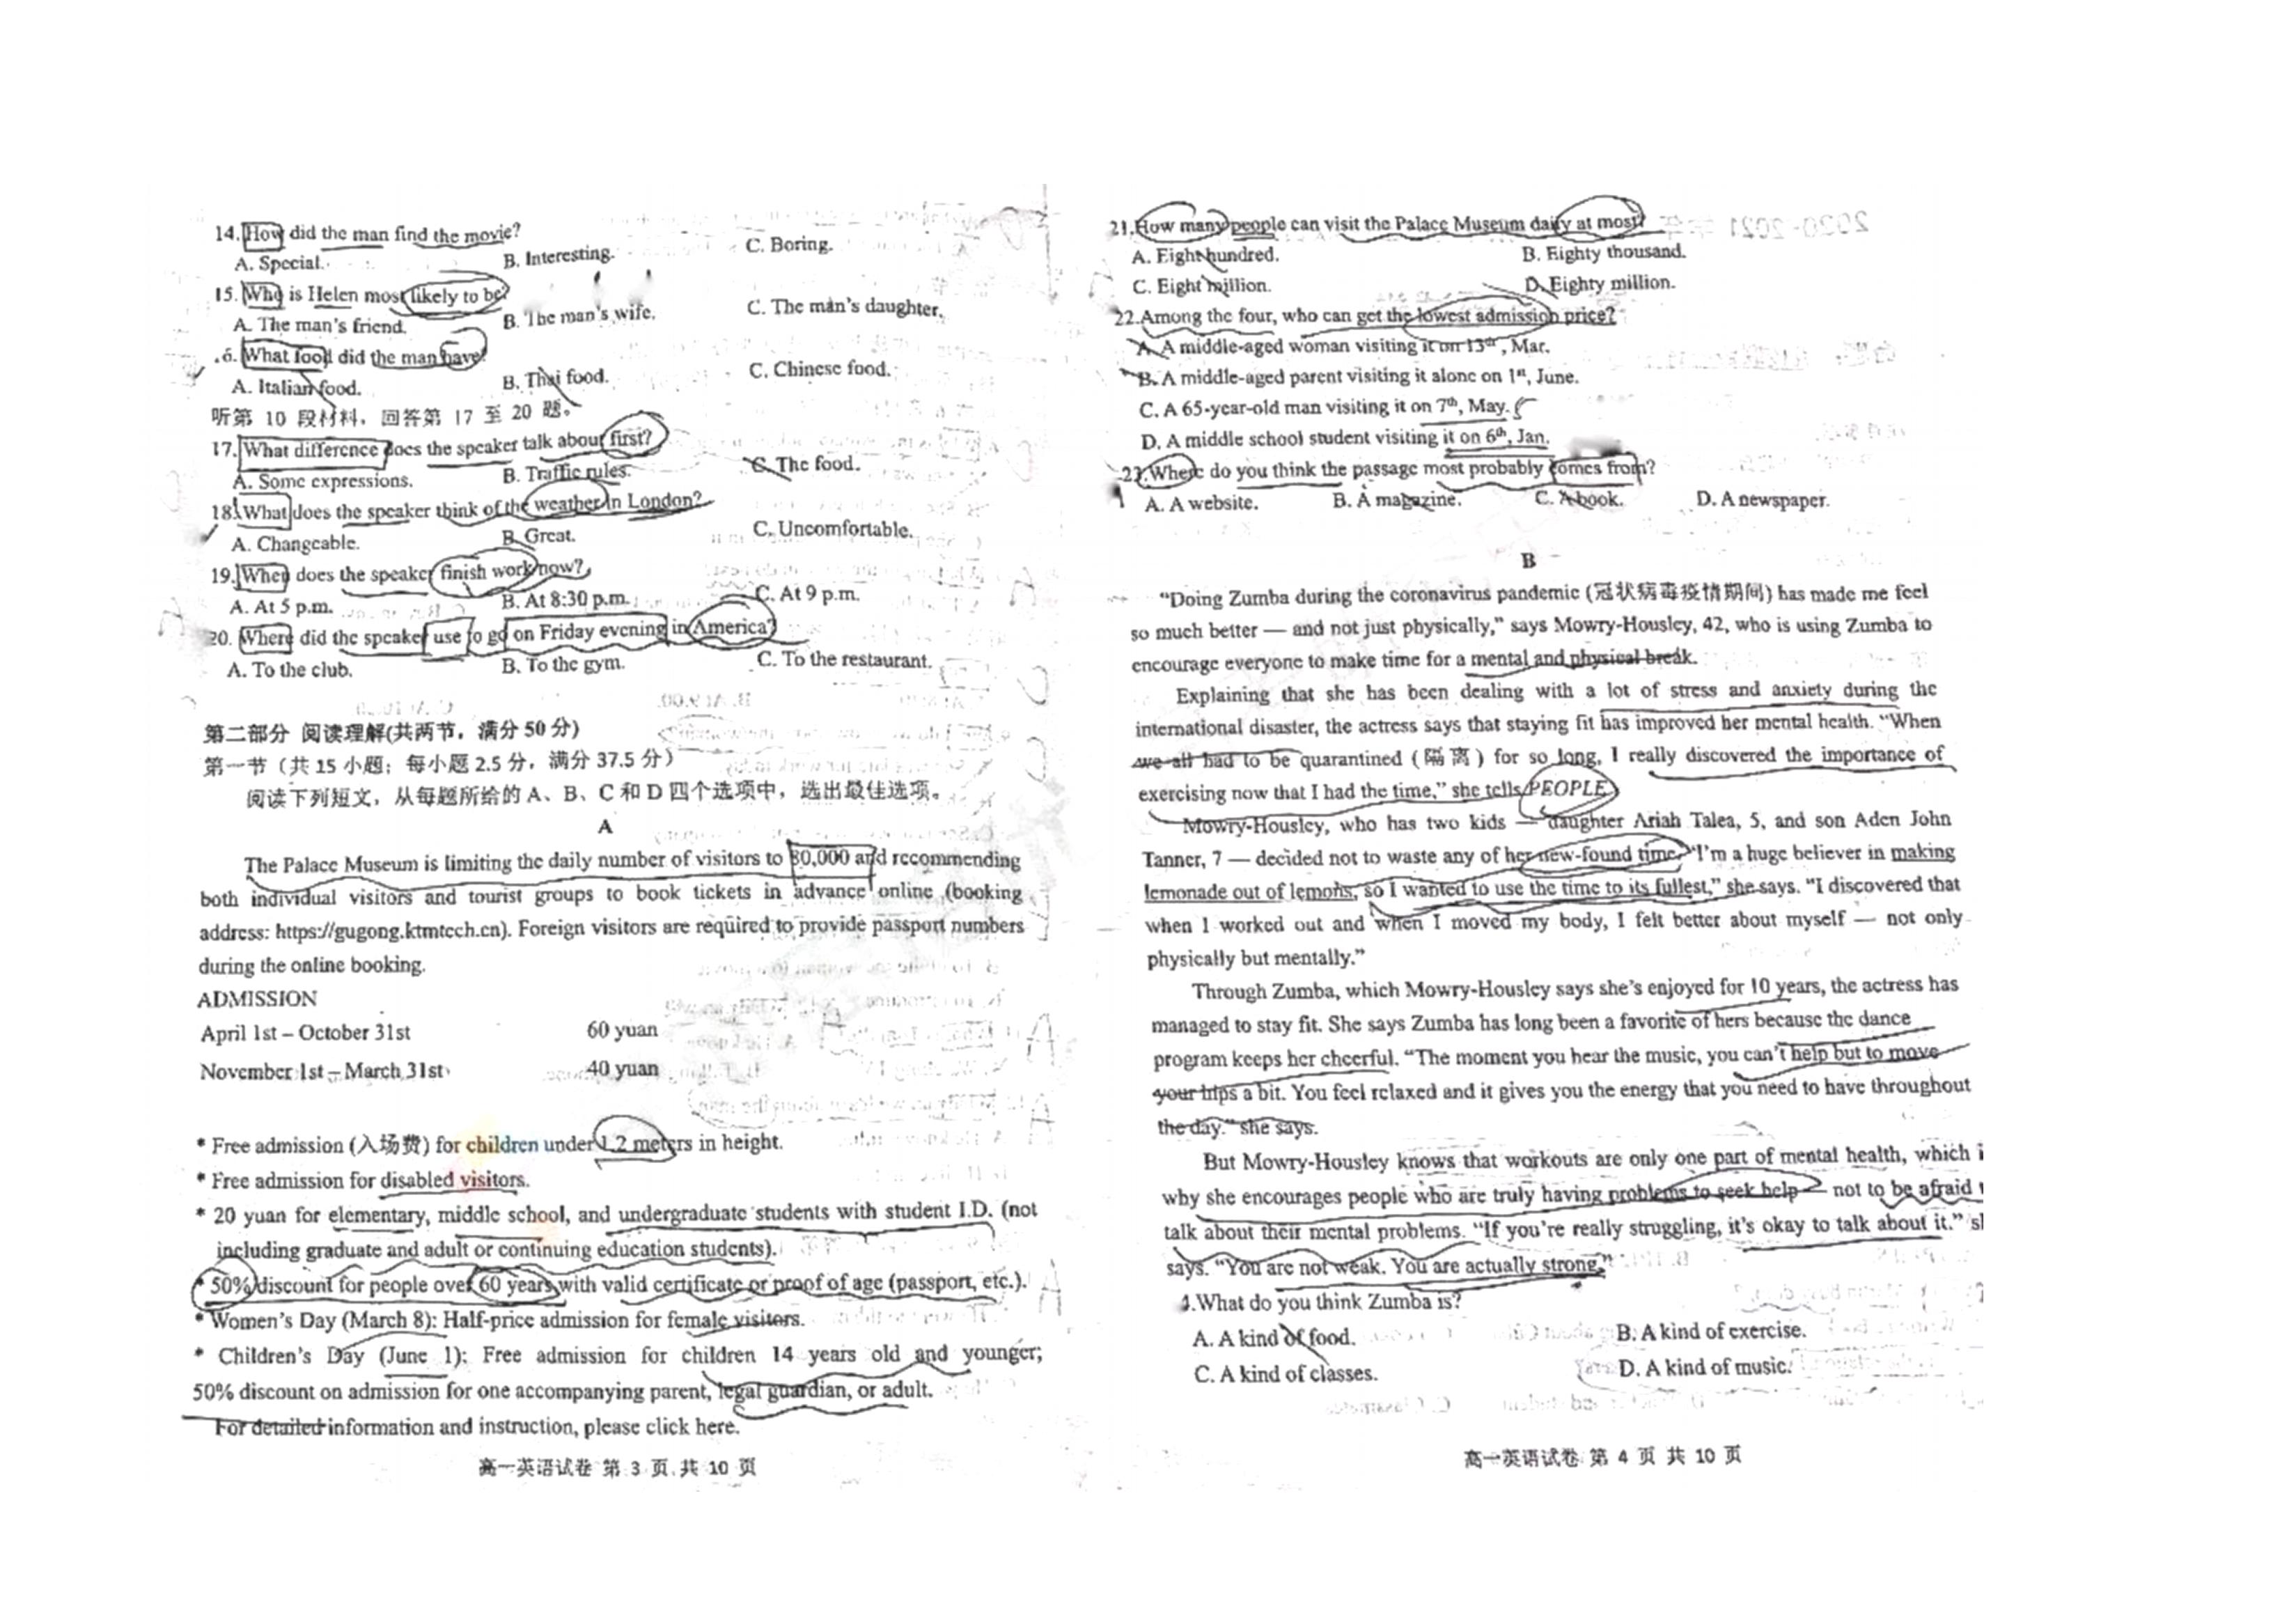 14. How did the man find the movie?
A. Special. B. Interesting. C. Boring.
15. Who is Helen most likely to be?
A. The man's friend. B. The man's wife. C. The man's daughter.
6. What food did the man have?
A. Italian food. B. Thai food. C. Chinese food.
听第 10 段材料,回答第 17 至 20 题。
17. What difference does the speaker talk about first?
A. Some expressions. B. Traffic rules. C. The food.
18. What does the speaker think of the weather in London?
A. Changeable. B. Great. C. Uncomfortable.
19. When does the speaker finish work now?
A. At 5 p.m. B. At 8:30 p.m. C. At 9 p.m.
20. Where did the speaker use to go on Friday evening in America?
A. To the club. B. To the gym. C. To the restaurant.
第二部分 阅读理解(共两节,满分 50 分)
第一节(共 15 小题;每小题 2.5 分,满分 37.5 分)
阅读下列短文,从每题所给的 A、B、C 和 D 四个选项中,选出最佳选项。
A
The Palace Museum is limiting the daily number of visitors to 80,000 and recommending
both individual visitors and tourist groups to book tickets in advance online (booking
address: https://gugong.ktmtech.cn). Foreign visitors are required to provide passport numbers
during the online booking.
ADMISSION
April 1st – October 31st 60 yuan
November 1st – March 31st 40 yuan
* Free admission (入场费) for children under 1.2 meters in height.
* Free admission for disabled visitors.
* 20 yuan for elementary, middle school, and undergraduate students with student I.D. (not
including graduate and adult or continuing education students).
* 50% discount for people over 60 years with valid certificate or proof of age (passport, etc.).
* Women's Day (March 8): Half-price admission for female visitors.
* Children's Day (June 1): Free admission for children 14 years old and younger;
50% discount on admission for one accompanying parent, legal guardian, or adult.
For detailed information and instruction, please click here.
高一英语试卷 第 3 页 共 10 页
21. How many people can visit the Palace Museum daily at most?
A. Eight hundred. B. Eighty thousand.
C. Eight million. D. Eighty million.
22. Among the four, who can get the lowest admission price?
A. A middle-aged woman visiting it on 13th, Mar.
B. A middle-aged parent visiting it alone on 1st, June.
C. A 65-year-old man visiting it on 7th, May.
D. A middle school student visiting it on 6th, Jan.
23. Where do you think the passage most probably comes from?
A. A website. B. A magazine. C. A book. D. A newspaper.
B
"Doing Zumba during the coronavirus pandemic (冠状病毒疫情期间) has made me feel
so much better — and not just physically," says Mowry-Housley, 42, who is using Zumba to
encourage everyone to make time for a mental and physical break.
Explaining that she has been dealing with a lot of stress and anxiety during the
international disaster, the actress says that staying fit has improved her mental health. "When
we all had to be quarantined (隔离) for so long, I really discovered the importance of
exercising now that I had the time," she tells PEOPLE
Mowry-Housley, who has two kids — daughter Ariah Talea, 5, and son Aden John
Tanner, 7 — decided not to waste any of her new-found time. "I'm a huge believer in making
lemonade out of lemons, so I wanted to use the time to its fullest," she says. "I discovered that
when I worked out and when I moved my body, I felt better about myself — not only
physically but mentally."
Through Zumba, which Mowry-Housley says she's enjoyed for 10 years, the actress has
managed to stay fit. She says Zumba has long been a favorite of hers because the dance
program keeps her cheerful. "The moment you hear the music, you can't help but to move
your hips a bit. You feel relaxed and it gives you the energy that you need to have throughout
the day." she says.
But Mowry-Housley knows that workouts are only one part of mental health, which i
why she encourages people who are truly having problems to seek help — not to be afraid t
talk about their mental problems. "If you're really struggling, it's okay to talk about it." sh
says. "You are not weak. You are actually strong."
4. What do you think Zumba is?
A. A kind of food. B. A kind of exercise.
C. A kind of classes. D. A kind of music.
高一英语试卷 第 4 页 共 10 页